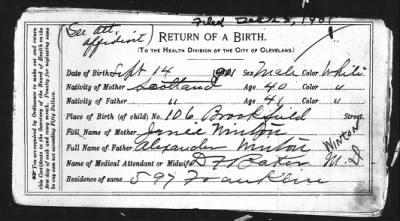 Filed Dec 23, 1901
(See att. affidavit)
RETURN OF A BIRTH.
(To the Health Division of the City of Cleveland.)
Date of Birth Sept 14 1901 Sex Male Color White
Nativity of Mother Scotland Age 40
Nativity of Father " Age 41
Place of Birth (of child) No. 106 Brookfield Street.
Full Name of Mother Winton
Full Name of Father Alexander Winton
Winton
Name of Medical Attendant or Midwife D F Baker M.D.
Residence of same 597 Franklin
NOTE—You are required by Ordinance to make out and